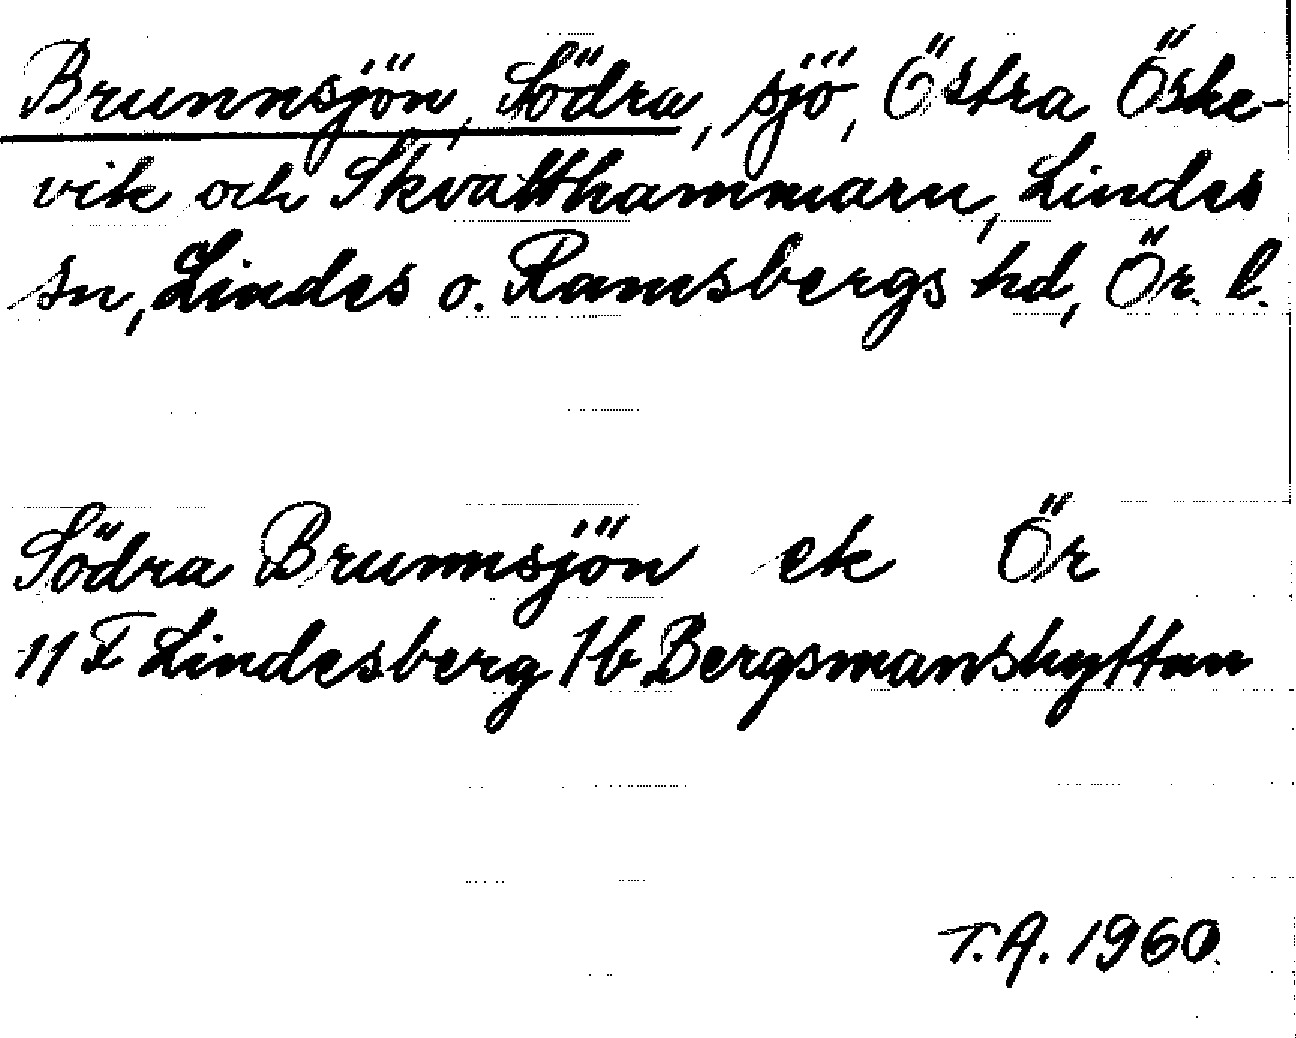 Brunnsjön, Södra, sjö, Östra Öske-
vik och Skvatthammarn, Lindes
sn, Lindes o. Ramsbergs hd, Ör. l.
Södra Brunnsjön ek Ör
11 F Lindesberg 1b Bergsmanshyttan
T.A. 1960